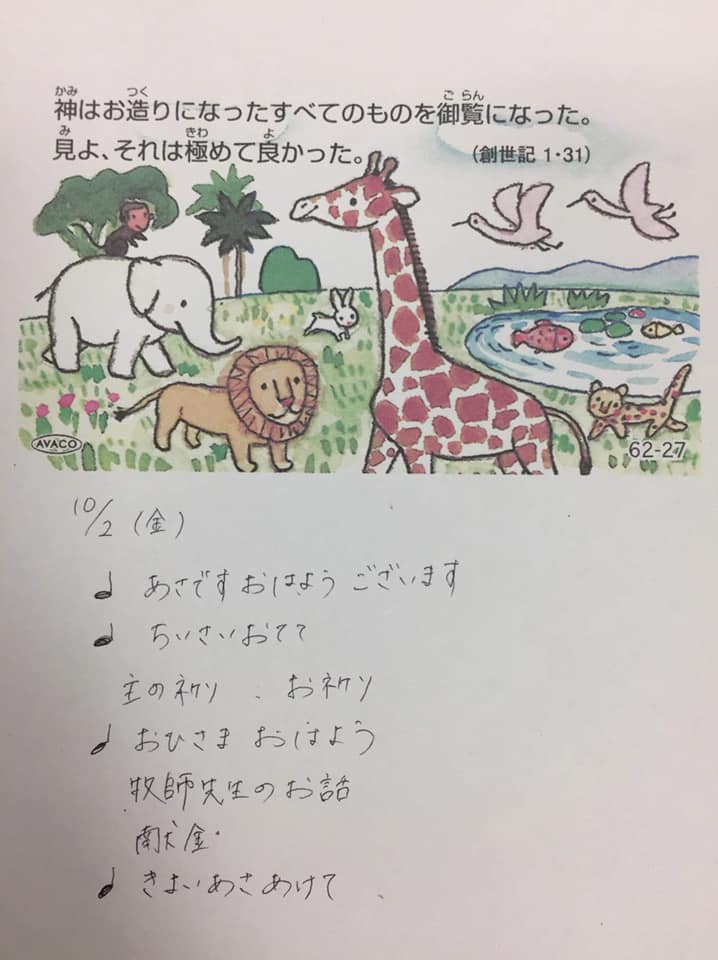 神はお造りになったすべてのものを御覧になった。
見よ、それは極めて良かった。 (創世記 1・31)
AVACO
62-27
10/2 (金)
♩ あさです おはよう ございます
♩ ちいさいおてて
主の祈り 、お祈り
♩ おひさま おはよう
牧師先生のお話
献金
♩ きよいあさあけて